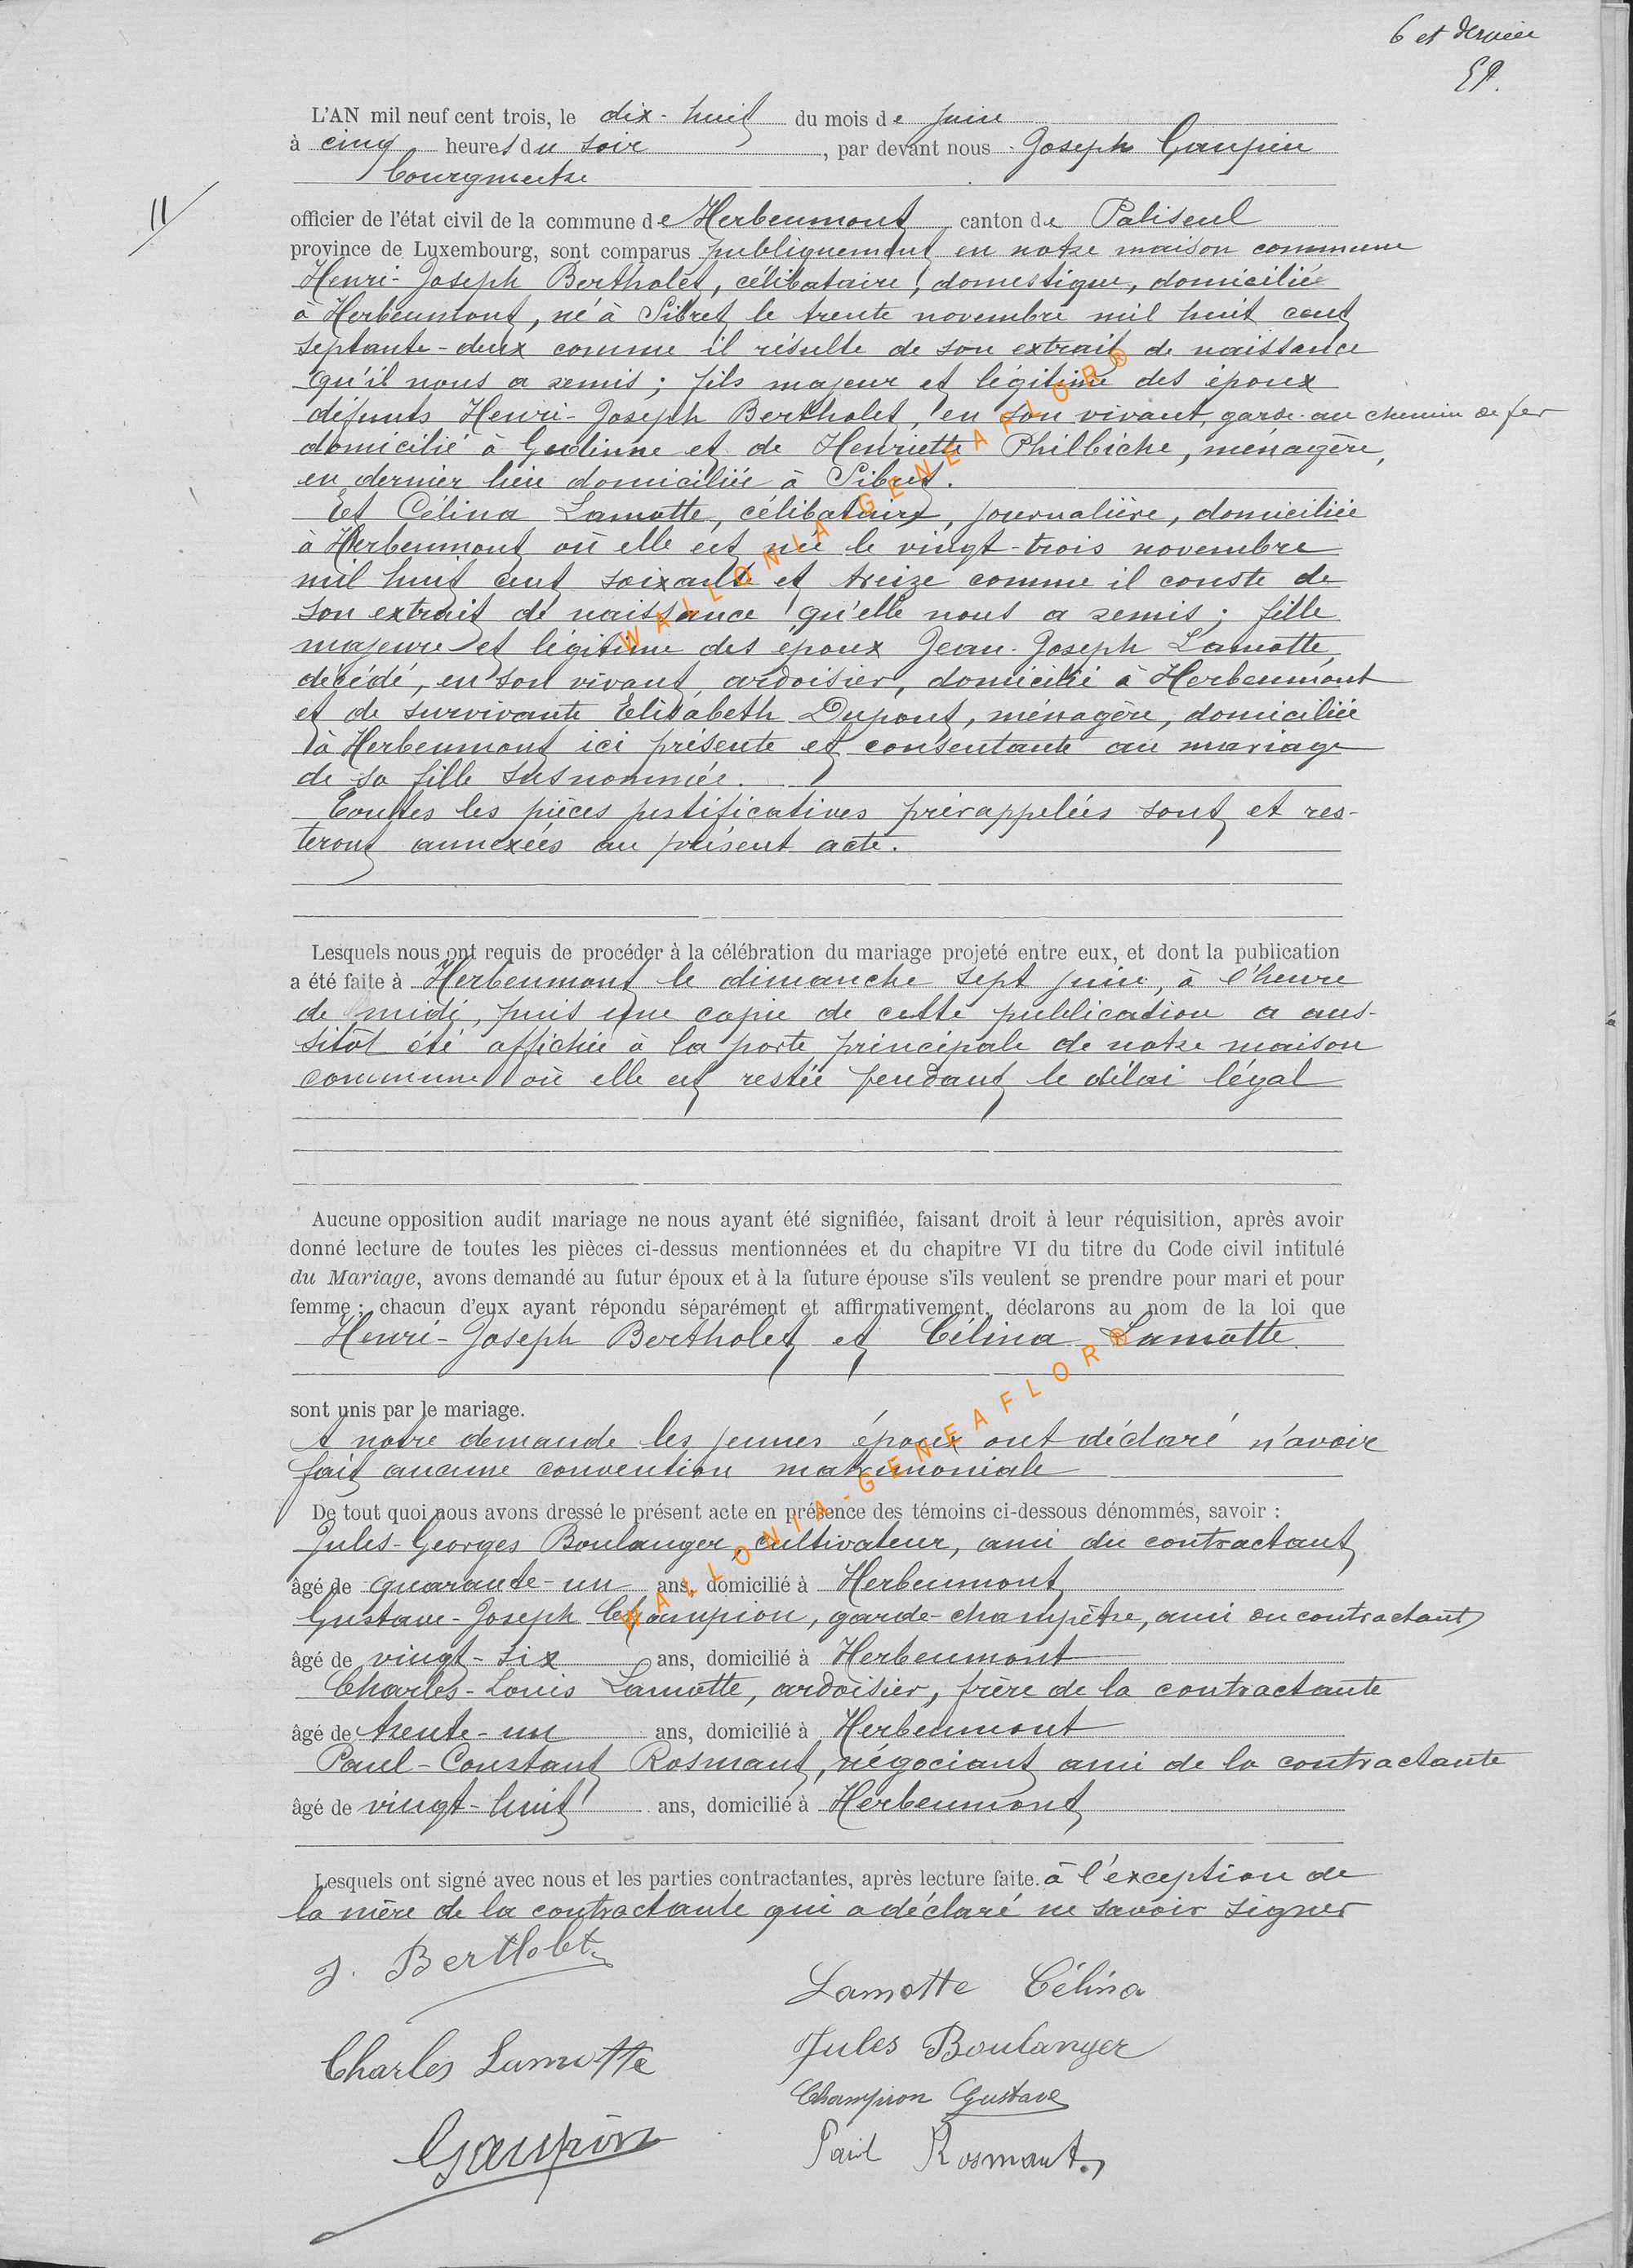 6 et dernier
L'AN mil neuf cent trois, le dix-huit du mois de juin
à cinq heures du soir, par devant nous Joseph Gaupin
bourgmestre
11
officier de l'état civil de la commune de Herbeumont canton de Paliseul
province de Luxembourg, sont comparus publiquement en notre maison commune
Henri-Joseph Bertholet, célibataire, domestique, domicilié
à Herbeumont, né à Sibret le trente novembre mil huit cent
septante-deux comme il résulte de son extrait de naissance
qu'il nous a remis ; fils majeur et légitime des époux
défunts Henri-Joseph Bertholet, en son vivant, garde au chemin de fer
domicilié à Gedinne et de Henriette Philbiche, ménagère,
en dernier lieu domiciliée à Sibret.
Et Célina Lamotte, célibataire, journalière, domiciliée
à Herbeumont où elle est née le vingt-trois novembre
mil huit cent soixante et treize comme il conste de
son extrait de naissance qu'elle nous a remis ; fille
majeure et légitime des époux Jean-Joseph Lamotte,
décédé, en son vivant, ardoisier, domicilié à Herbeumont
et de survivante Elisabeth Dupont, ménagère, domiciliée
à Herbeumont ici présente et consentante au mariage
de sa fille susnommée.
Toutes les pièces justificatives prérappelées sont et res-
teront annexées au présent acte.
Lesquels nous ont requis de procéder à la célébration du mariage projeté entre eux, et dont la publication
a été faite à Herbeumont le dimanche sept juin, à l'heure
de midi, puis une copie de cette publication a aus-
sitôt été affichée à la porte principale de notre maison
commune où elle est restée pendant le délai légal
Aucune opposition audit mariage ne nous ayant été signifiée, faisant droit à leur réquisition, après avoir
donné lecture de toutes les pièces ci-dessus mentionnées et du chapitre VI du titre du Code civil intitulé
du Mariage, avons demandé au futur époux et à la future épouse s'ils veulent se prendre pour mari et pour
femme ; chacun d'eux ayant répondu séparément et affirmativement, déclarons au nom de la loi que
Henri-Joseph Bertholet et Célina Lamotte
sont unis par le mariage.
A notre demande les jeunes époux ont déclaré n'avoir
fait aucune convention matrimoniale
De tout quoi nous avons dressé le présent acte en présence des témoins ci-dessous dénommés, savoir :
Jules-Georges Boulanger, cultivateur, ami du contractant
âgé de quarante-un ans, domicilié à Herbeumont
Gustave-Joseph Champion, garde-champêtre, ami du contractant
âgé de vingt-six ans, domicilié à Herbeumont
Charles-Louis Lamotte, ardoisier, frère de la contractante
âgé de trente-un ans, domicilié à Herbeumont
Paul-Constant Rosmant, négociant ami de la contractante
âgé de vingt-huit ans, domicilié à Herbeumont
Lesquels ont signé avec nous et les parties contractantes, après lecture faite. à l'exception de
la mère de la contractante qui a déclaré ne savoir signer
J. Bertholet
Lamotte Célina
Charles Lamotte
Jules Boulanger
Champion Gustave
Gaupin
Paul Rosmant
WALLONIA-GENEAFLOR®
WALLONIA-GENEAFLOR®